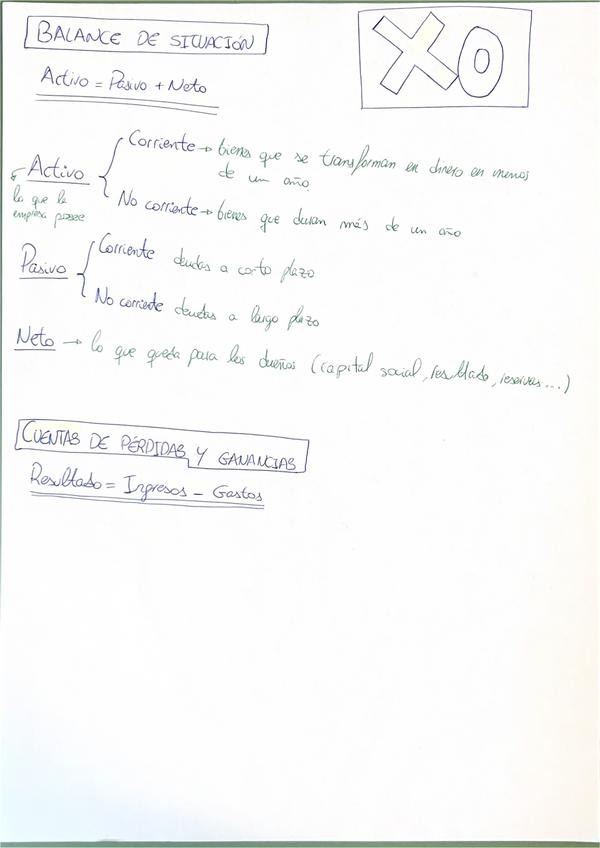 BALANCE DE SITUACIÓN
XO
Activo = Pasivo + Neto
Corriente → bienes que se transforman en dinero en menos
de un año
Activo
lo que la
empresa posee
No corriente → bienes que duran más de un año
Pasivo
Corriente deudas a corto plazo
No corriente deudas a largo plazo
Neto → lo que queda para los dueños (capital social, resultado, reservas...)
CUENTAS DE PÉRDIDAS Y GANANCIAS
Resultado = Ingresos - Gastos